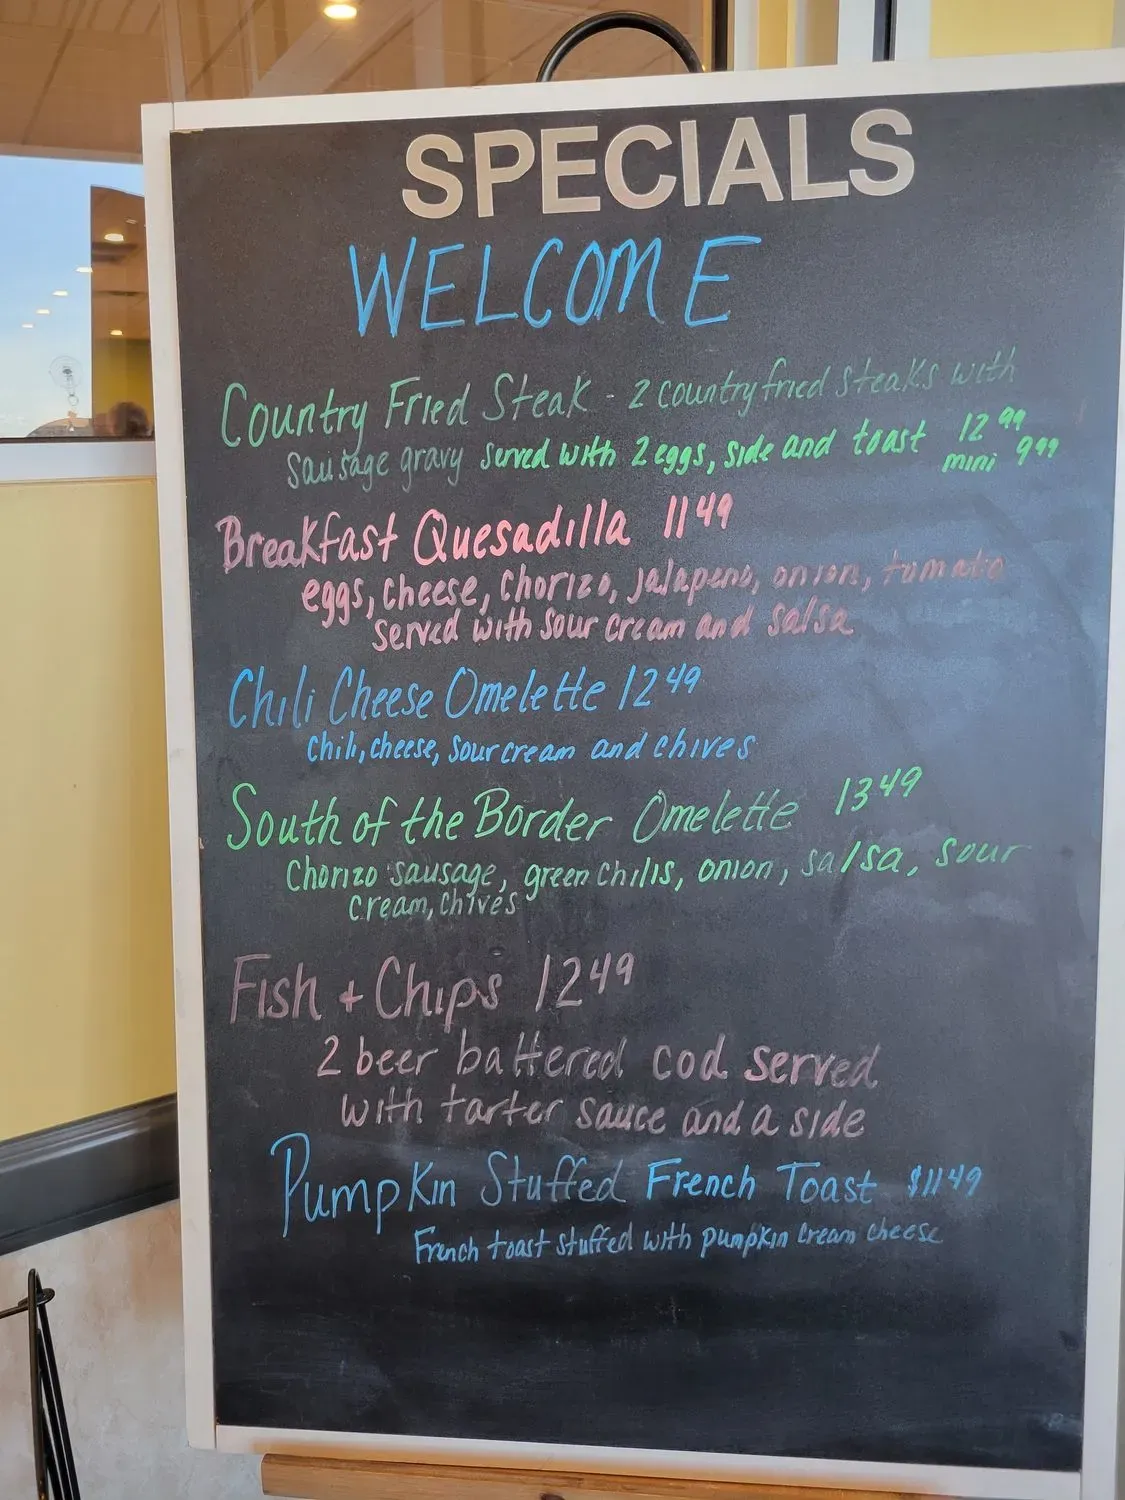 SPECIALS
WELCOME
Country Fried Steak - 2 country fried steaks with
sausage gravy served with 2 eggs, side and toast 12.99
mini 9.99
Breakfast Quesadilla 11.49
eggs, cheese, chorizo, jalapeno, onion, tomato
served with sour cream and salsa
Chili Cheese Omelette 12.49
chili, cheese, sour cream and chives
South of the Border Omelette 13.49
Chorizo sausage, green chilis, onion, salsa, sour
cream, chives
Fish + Chips 12.49
2 beer battered cod served
with tarter sauce and a side
Pumpkin Stuffed French Toast $11.49
French toast stuffed with pumpkin cream cheese